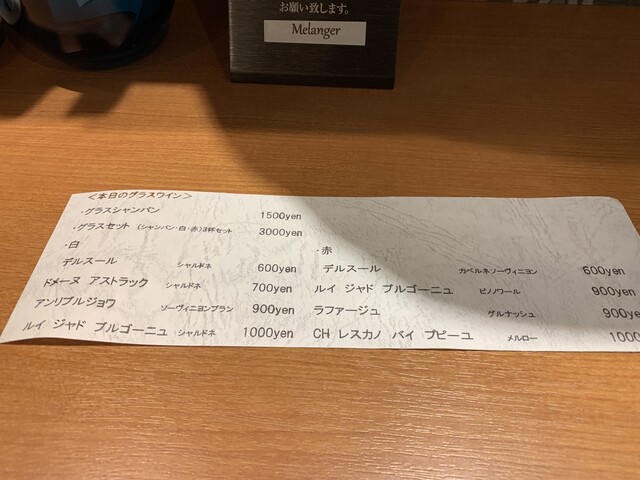 お願い致します。
Melanger
＜本日のグラスワイン＞
・グラスシャンパン 1500yen
・グラスセット （シャンパン・白・赤）3杯セット 3000yen
・白
デルスール シャルドネ 600yen
ドメーヌ アストラック シャルドネ 700yen
アンリブルジョワ ソーヴィニヨンブラン 900yen
ルイ ジャド ブルゴーニュ シャルドネ 1000yen
・赤
デルスール カベルネソーヴィニヨン 600yen
ルイ ジャド ブルゴーニュ ピノノワール 900yen
ラファージュ グルナッシュ 900ye
CH レスカノ バイ プピーユ メルロー 1000